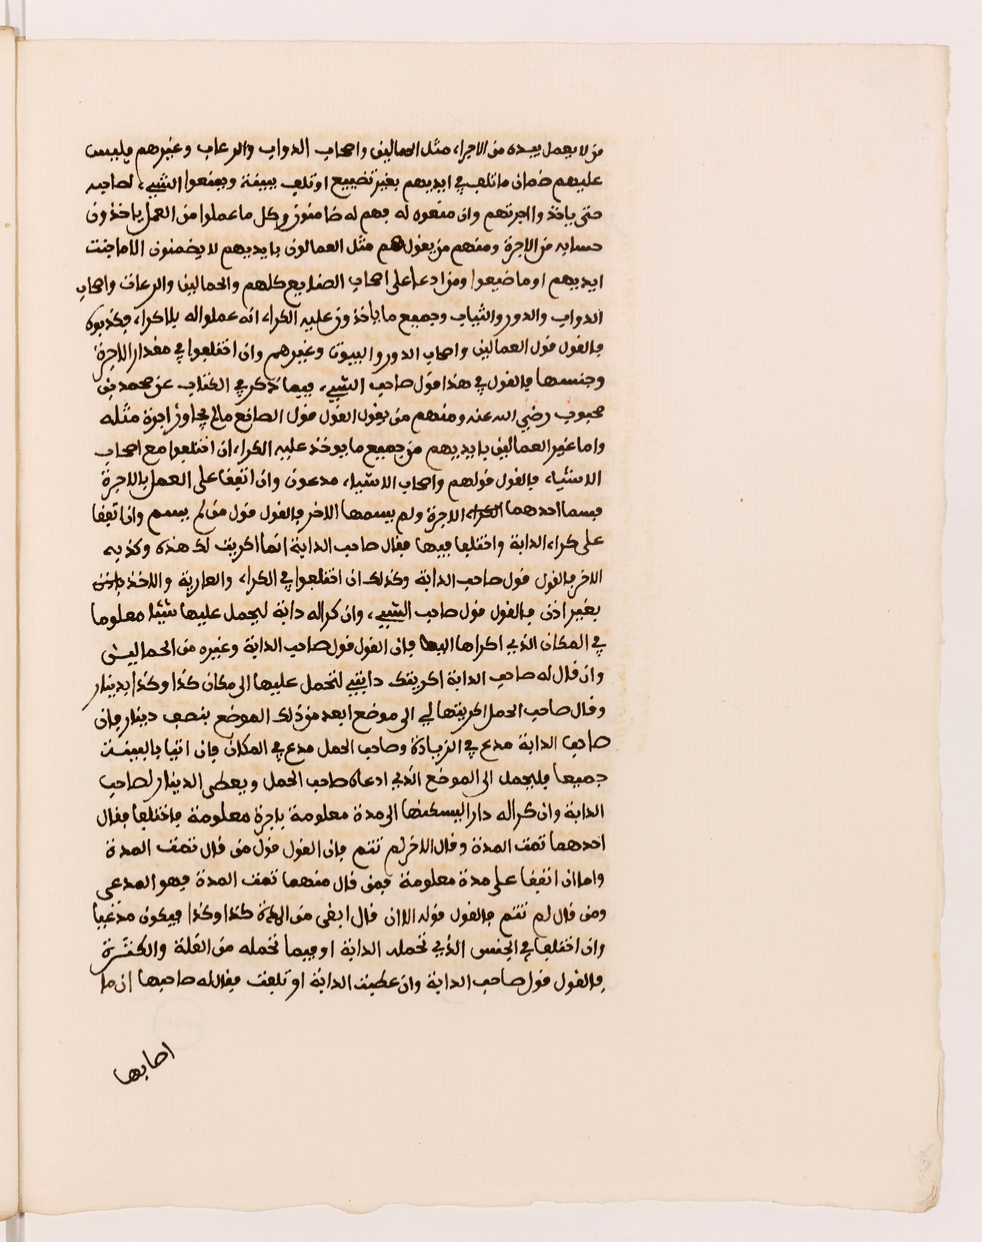 من لا يعمل بيده من الاجراء مثل الحمالين واصحاب الدواب والرعاب وغيرهم فليس
عليهم ضمان ما تلف في ايديهم بغير تضييع او تلف ببينة ويمنعوا الشيء لصاحبه
حتى ياخذوا اجرتهم وان منعوه له فهم له ضامنون وكل ما عملوا من العمل ياخذون
حسابه من الاجرة ومنهم من يقول هم مثل العمالون بايديهم لا يضمنون الا ما جنت
ايديهم او ما ضيعوا ومن ادعا على اصحاب الصنايع كلهم والحمالين والرعات واصحاب
الدواب والدور والثياب وجميع ما ياخذون عليه الكراء انه عملوا له بلا كراء فكذبوه
فالقول قول العمالين واصحاب الدور والبيوت وغيرهم وان اختلفوا في مقدار الاجرة
وجنسها فالقول في هذا قول صاحب الشيء فيما ذكر في الكتاب عن محمد بن
محبوب رضي الله عنه ومنهم من يقول القول قول الصانع مالم يجاوز اجرة مثله
واما غير العمالين بايديهم من جميع ما يوخذ عليه الكراء ان اختلفوا مع اصحاب
الاشياء فالقول قولهم واصحاب الاشياء مدعون وان اتفقا على العمل بالاجرة
فسما احدهما الاجرة ولم يسمها الاخر فالقول قول من لم يسم وان اتفقا
على كراء الدابة واختلفا فيها فقال صاحب الدابة انما اكريت لك هذه وكذبه
الاخر فالقول قول صاحب الدابة وكذلك ان اختلفوا في الكراء والعارية والاخذ
بغير اذن فالقول قول صاحب الشيء وان كرا له دابة ليحمل عليها شيئا معلوما
في المكان الذي اكراها اليه فان القول قول صاحب الدابة وغيره من الحمالين
وان قال له صاحب الدابة اكريتك دابتي لتحمل عليها الى مكان كذا وكذا بدينار
وقال صاحب الحمل اكريتها لي الى موضع ابعد من ذلك الموضع بنصف دينار فان
صاحب الدابة مدع في الزيادة وصاحب الحمل مدع في المكان فان اتيا بالبينة
جميعا فليحمل الى الموضع الذي ادعاه صاحب الحمل ويعطى الدينار لصاحب
الدابة وان كرا له دارا ليسكنها الى مدة معلومة باجرة معلومة فاختلفا فقال
احدهما تمت المدة وقال الاخر لم تتم فان القول قول من قال تمت المدة
واما ان اتفقا على مدة معلومة فمن قال منهما تمت المدة فهو المدعى
ومن قال لم تتم فالقول قوله الا ان قال ابقى من المدة كذا وكذا فيكون مدعيا
وان اختلفا في الجنس الذي تحمله الدابة او فيما تحمله من القلة والكثرة
فالقول قول صاحب الدابة وان عطبت الدابة او تلفت فقال له صاحبها ان ما
اصابها